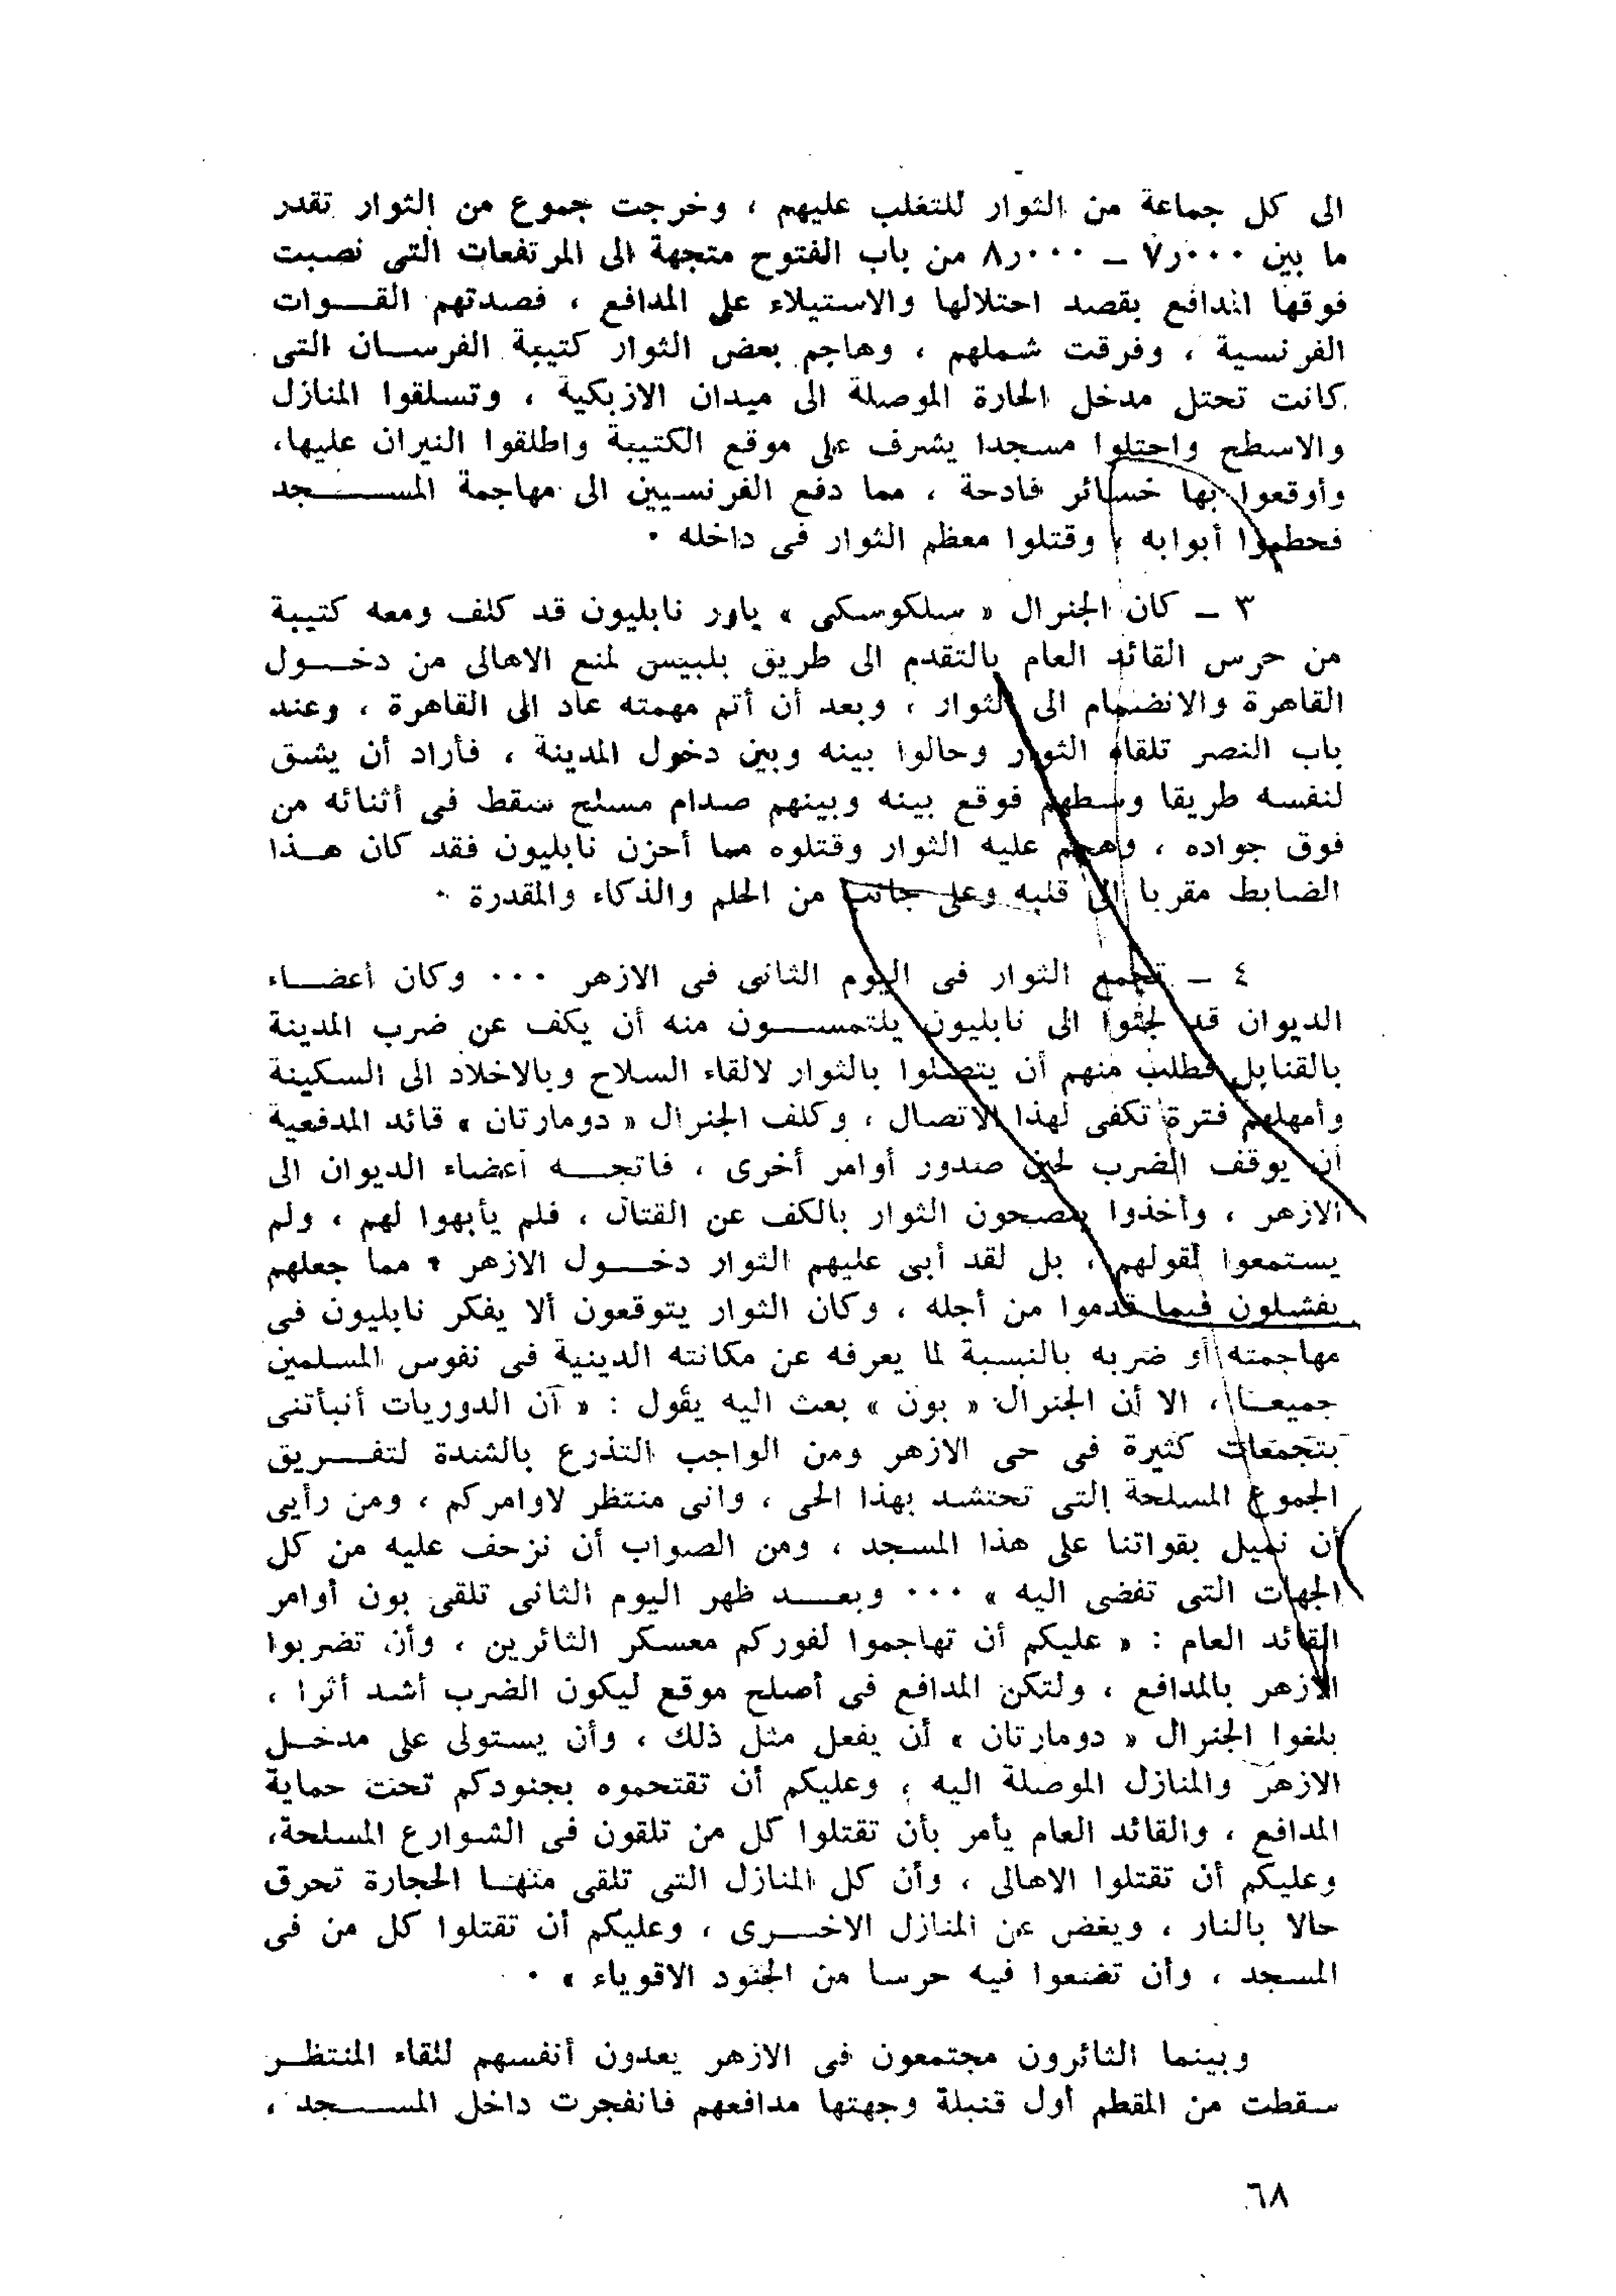 الى كل جماعة من الثوار للتغلب عليهم ، وخرجت جموع من الثوار تقدر
ما بين ٧٫٠٠٠ – ٨٫٠٠٠ من باب الفتوح متجهة الى المرتفعات التى نصبت
فوقها المدافع بقصد احتلالها والاستيلاء على المدافع ، فصدتهم القــوات
الفرنسية ، وفرقت شملهم ، وهاجم بعض الثوار كتيبة الفرســان التى
كانت تحتل مدخل الحارة الموصلة الى ميدان الازبكية ، وتسلقوا المنازل
والاسطح واحتلوا مسجدا يشرف على موقع الكتيبة واطلقوا النيران عليها،
وأوقعوا بها خسائر فادحة ، مما دفع الفرنسيين الى مهاجمة المســـجد
فحطموا أبوابه ، وقتلوا معظم الثوار فى داخله ٠
٣ – كان الجنرال « سلكوسكى » ياور نابليون قد كلف ومعه كتيبة
من حرس القائد العام بالتقدم الى طريق بلبيس لمنع الاهالى من دخــول
القاهرة والانضمام الى الثوار ، وبعد أن أتم مهمته عاد الى القاهرة ، وعند
باب النصر تلقاه الثوار وحالوا بينه وبين دخول المدينة ، فأراد أن يشق
لنفسه طريقا وسطهم فوقع بينه وبينهم صدام مسلح سقط فى أثنائه من
فوق جواده ، وهجم عليه الثوار وقتلوه مما أحزن نابليون فقد كان هــذا
الضابط مقربا الى قلبه وعلى جانب من الحلم والذكاء والمقدرة ٠
٤ – تجمع الثوار فى اليوم الثانى فى الازهر ٠٠٠ وكان أعضــاء
الديوان قد لجئوا الى نابليون يلتمســـون منه أن يكف عن ضرب المدينة
بالقنابل فطلب منهم أن يتصلوا بالثوار لالقاء السلاح وبالاخلاد الى السكينة
وأمهلهم فترة تكفى لهذا الاتصال ، وكلف الجنرال « دومارتان » قائد المدفعية
أن يوقف الضرب لحين صدور أوامر أخرى ، فاتجــه أعضاء الديوان الى
الازهر ، وأخذوا ينصحون الثوار بالكف عن القتال ، فلم يأبهوا لهم ، ولم
يستمعوا لقولهم ، بل لقد أبى عليهم الثوار دخــول الازهر ٠ مما جعلهم
يفشلون فيما قدموا من أجله ، وكان الثوار يتوقعون ألا يفكر نابليون فى
مهاجمته أو ضربه بالنسبة لما يعرفه عن مكانته الدينية فى نفوس المسلمين
جميعــا ، الا أن الجنرال « بون » بعث اليه يقول : « أن الدوريات أنبأتنى
بتجمعات كثيرة فى حى الازهر ومن الواجب التذرع بالشدة لتفــريق
الجموع المسلحة التى تحتشد بهذا الحى ، وانى منتظر لاوامركم ، ومن رأيى
أن نميل بقواتنا على هذا المسجد ، ومن الصواب أن نزحف عليه من كل
الجهات التى تفضى اليه » ٠٠٠ وبعــد ظهر اليوم الثانى تلقى بون أوامر
القائد العام : « عليكم أن تهاجموا لفوركم معسكر الثائرين ، وأن تضربوا
الازهر بالمدافع ، ولتكن المدافع فى أصلح موقع ليكون الضرب أشد أثرا ،
بلغوا الجنرال « دومارتان » أن يفعل مثل ذلك ، وأن يستولى على مدخــل
الازهر والمنازل الموصلة اليه ، وعليكم أن تقتحموه بجنودكم تحت حماية
المدافع ، والقائد العام يأمر بأن تقتلوا كل من تلقون فى الشوارع المسلحة،
وعليكم أن تقتلوا الاهالى ، وأن كل المنازل التى تلقى منهــا الحجارة تحرق
حالا بالنار ، ويغض عن المنازل الاخــرى ، وعليكم أن تقتلوا كل من فى
المسجد ، وأن تضعوا فيه حرسا من الجنود الاقوياء » ٠
وبينما الثائرون مجتمعون فى الازهر يعدون أنفسهم للقاء المنتظــر
سقطت من المقطم أول قنبلة وجهتها مدافعهم فانفجرت داخل المســجد ،
٦٨